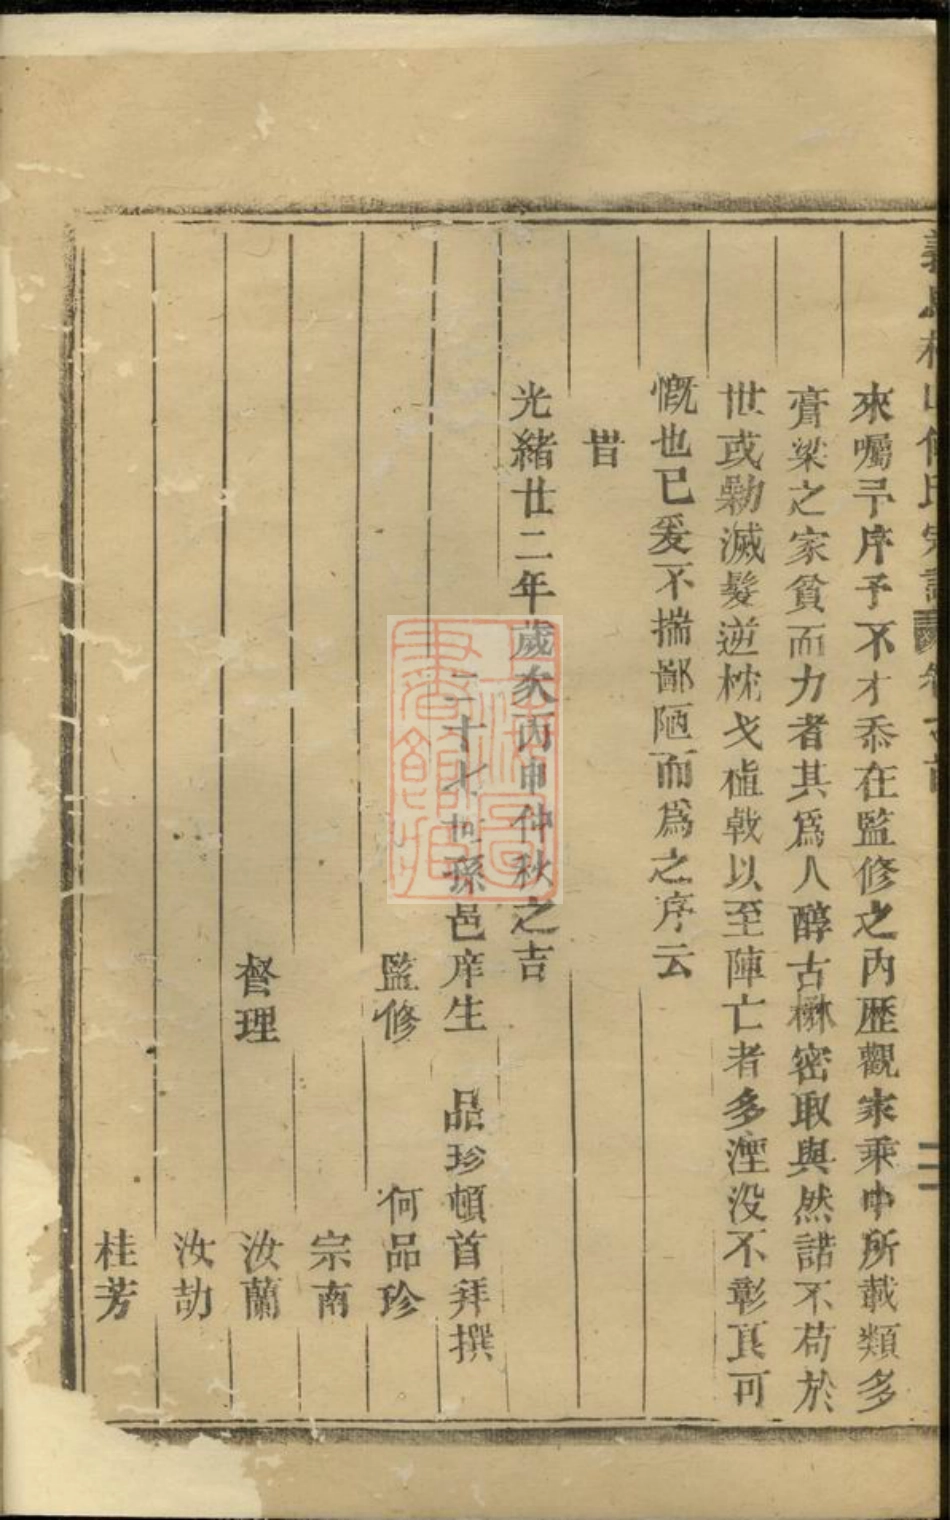 來囑予序予不才忝在監修之內歷觀家乘中所載類多
膏粱之家貧而力者其爲人醇古樕密取與然諾不苟於
世或勦滅髮逆枕戈植戟以至陣亡者多湮没不彰眞可
慨也已爰不揣鄙陋而爲之序云
旹
光緒廿二年歲次丙申仲秋之吉
二十七世孫邑庠生 品珍頓首拜撰
監修 何品珍
宗南
督理 汝蘭
汝劼
桂芳